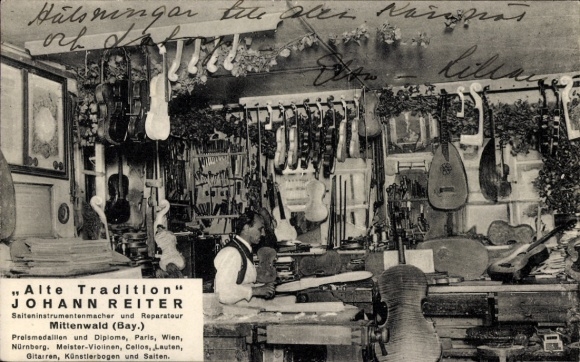 Hälsningar till alla
och
„Alte Tradition"
JOHANN REITER
Saiteninstrumentenmacher und Reparateur
Mittenwald (Bay.)
Preismedaillen und Diplome, Paris, Wien,
Nürnberg. Meister-Violinen, Cellos, Lauten,
Gitarren, Künstlerbogen und Saiten.